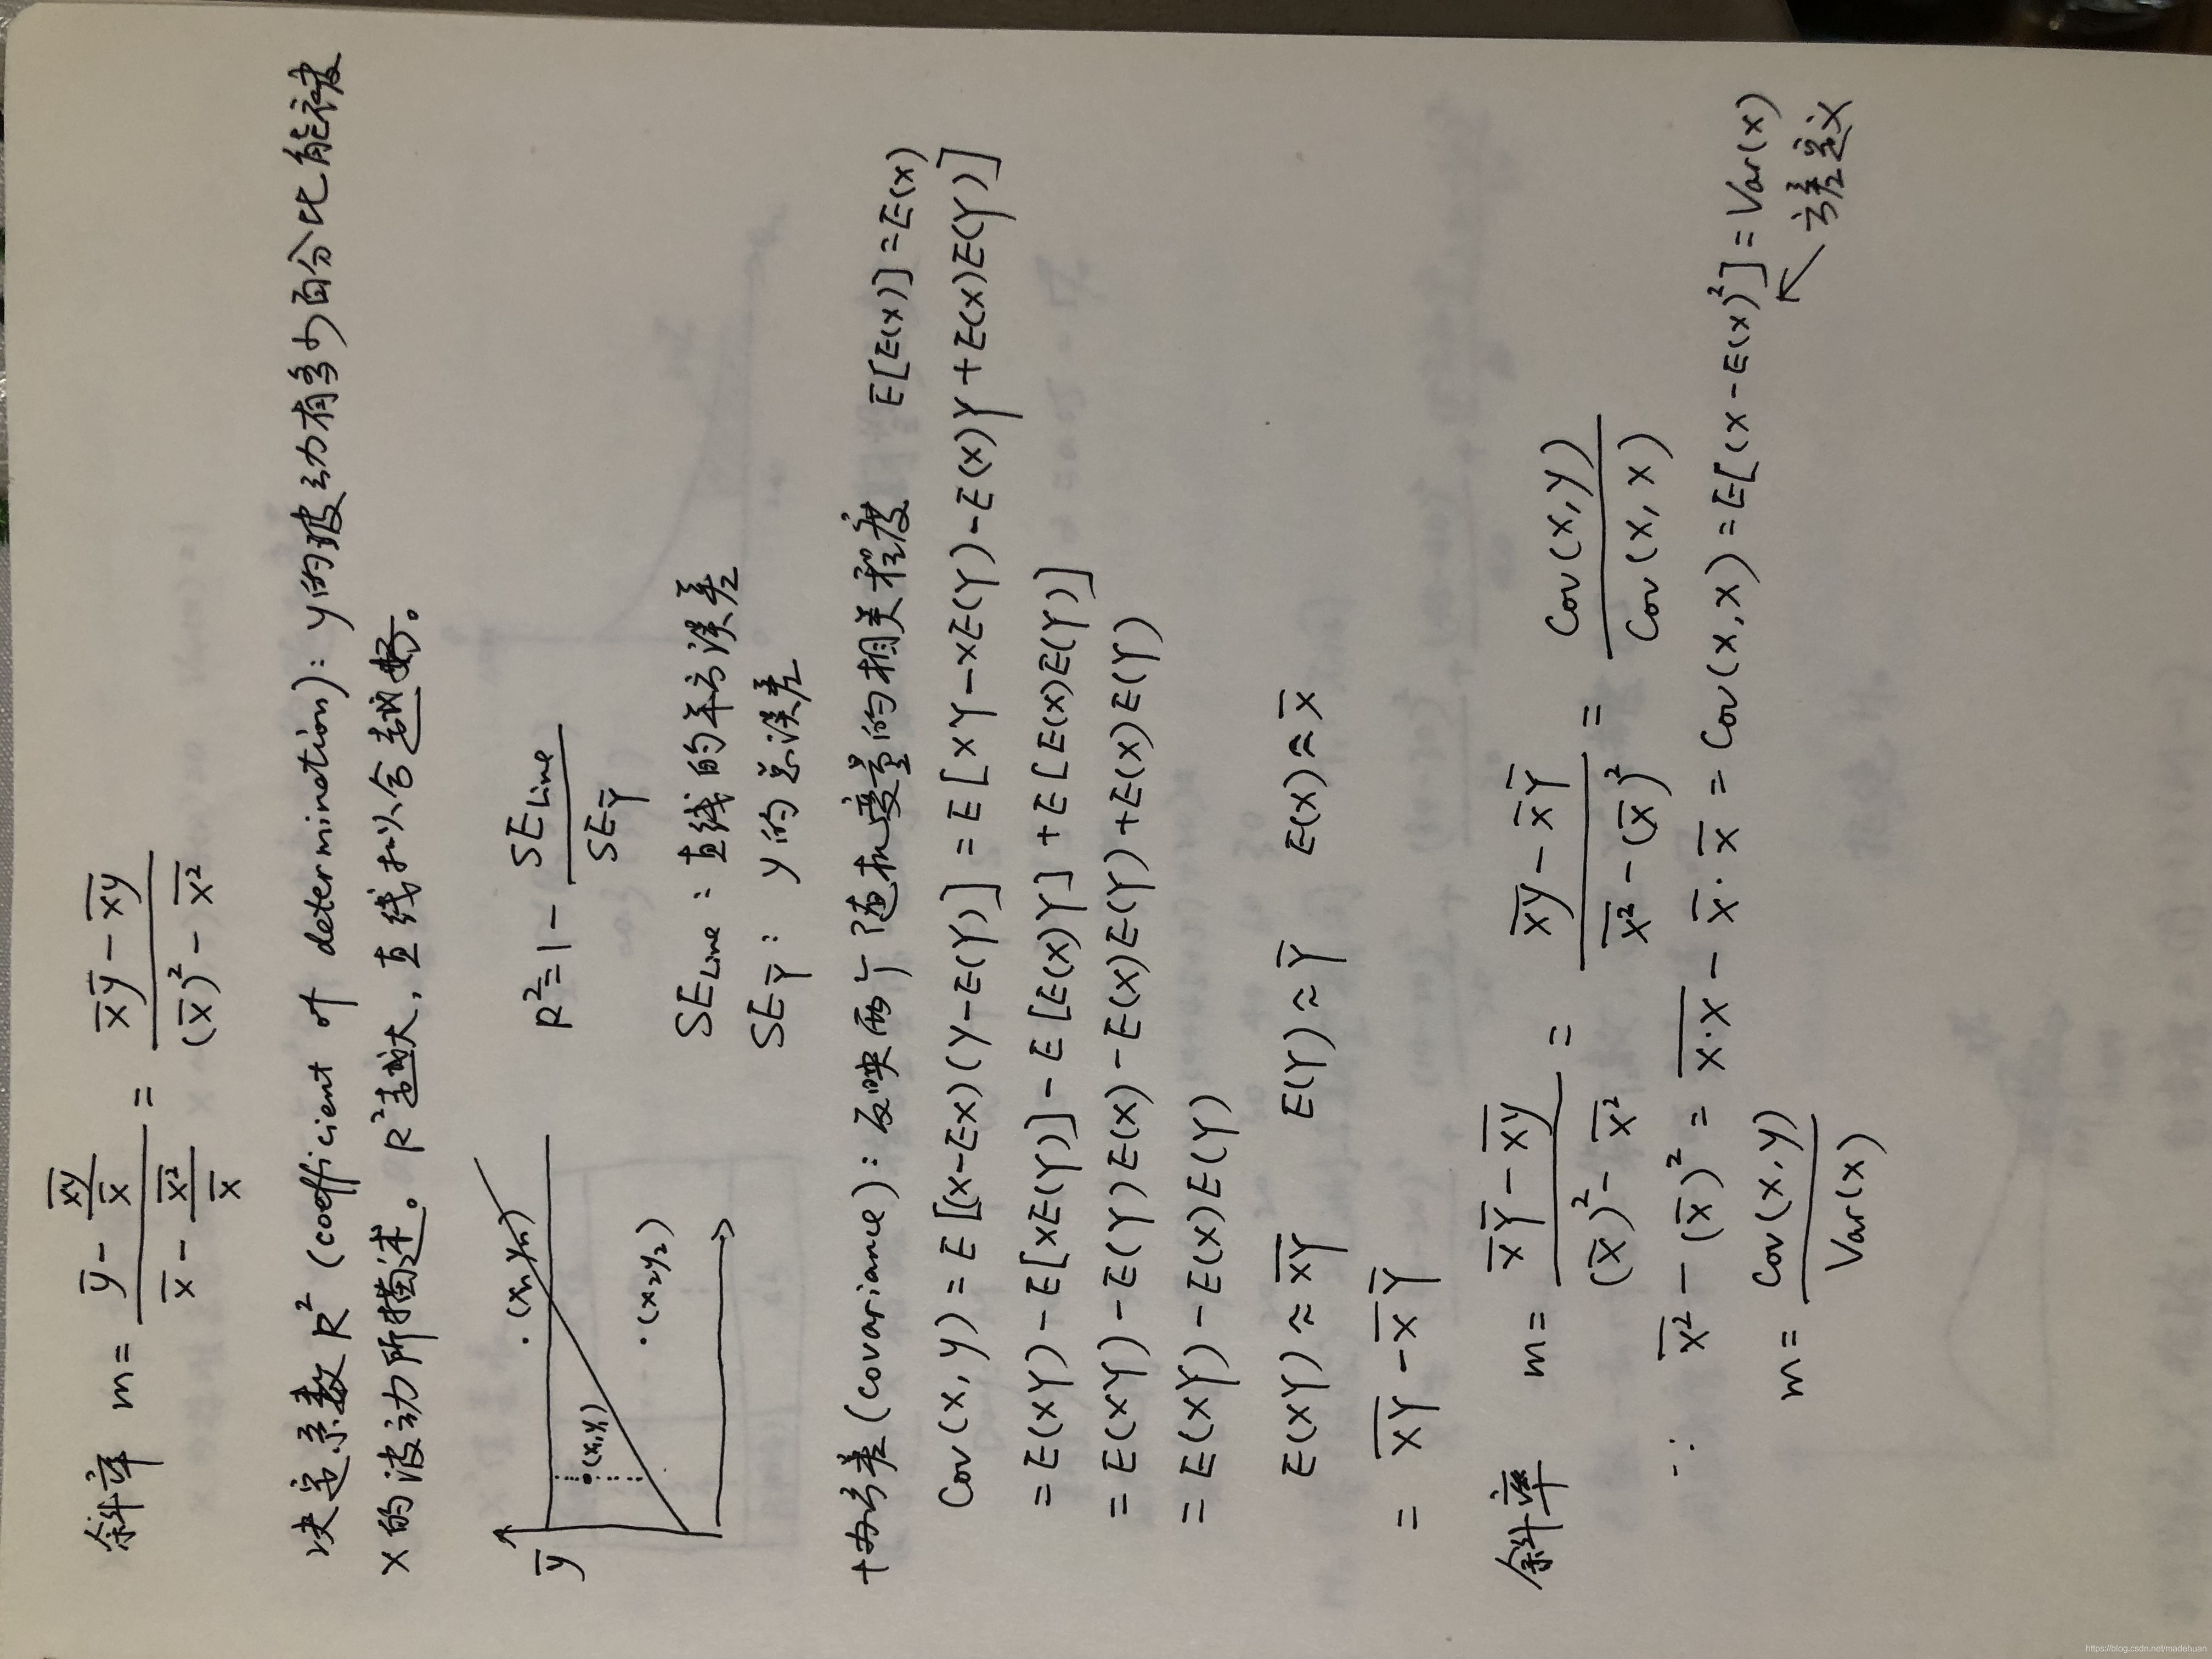 斜率 m = (ȳ - x̅y̅/x̄) / (x̄ - x̅²̅/x̄) = (x̄ȳ - x̅y̅) / ((x̄)² - x̅²̅)
决定系数 R² (coefficient of determination): y的波动有多少百分比能被
x的波动所描述。R²越大，直线拟合越好。
ȳ
·(x₁y₁)
·(xₙyₙ)
·(x₂y₂)
R² = 1 - SE_Line / SE_Ȳ
SE_Line : 直线的平方误差
SE_Ȳ : y的总误差
协方差(covariance): 反映两个随机变量的相关程度 E[E(x)]=E(x)
Cov(x,y) = E[(x-Ex)(Y-E(Y)] = E[xY-xE(Y)-E(x)Y+E(x)E(Y)]
= E(xY) - E[xE(Y)] - E[E(x)Y] + E[E(x)E(Y)]
= E(xY) - E(Y)E(x) - E(x)E(Y) + E(x)E(Y)
= E(xY) - E(x)E(Y)
E(xY) ≈ x̅Y̅ E(Y) ≈ Ȳ E(x) ≈ x̄
= x̅Y̅ - x̄ Ȳ
斜率 m = (x̄Ȳ - x̅y̅) / ((x̄)² - x̅²̅) = (x̅y̅ - x̄Ȳ) / (x̅²̅ - (x̄)²) = Cov(x,y) / Cov(x,x)
∵ x̅²̅ - (x̄)² = x̅·̅x̅ - x̄·x̄ = Cov(x,x) = E[(x-E(x)²] = Var(x)
m = Cov(x,y) / Var(x)
方差定义
https://blog.csdn.net/madehuan